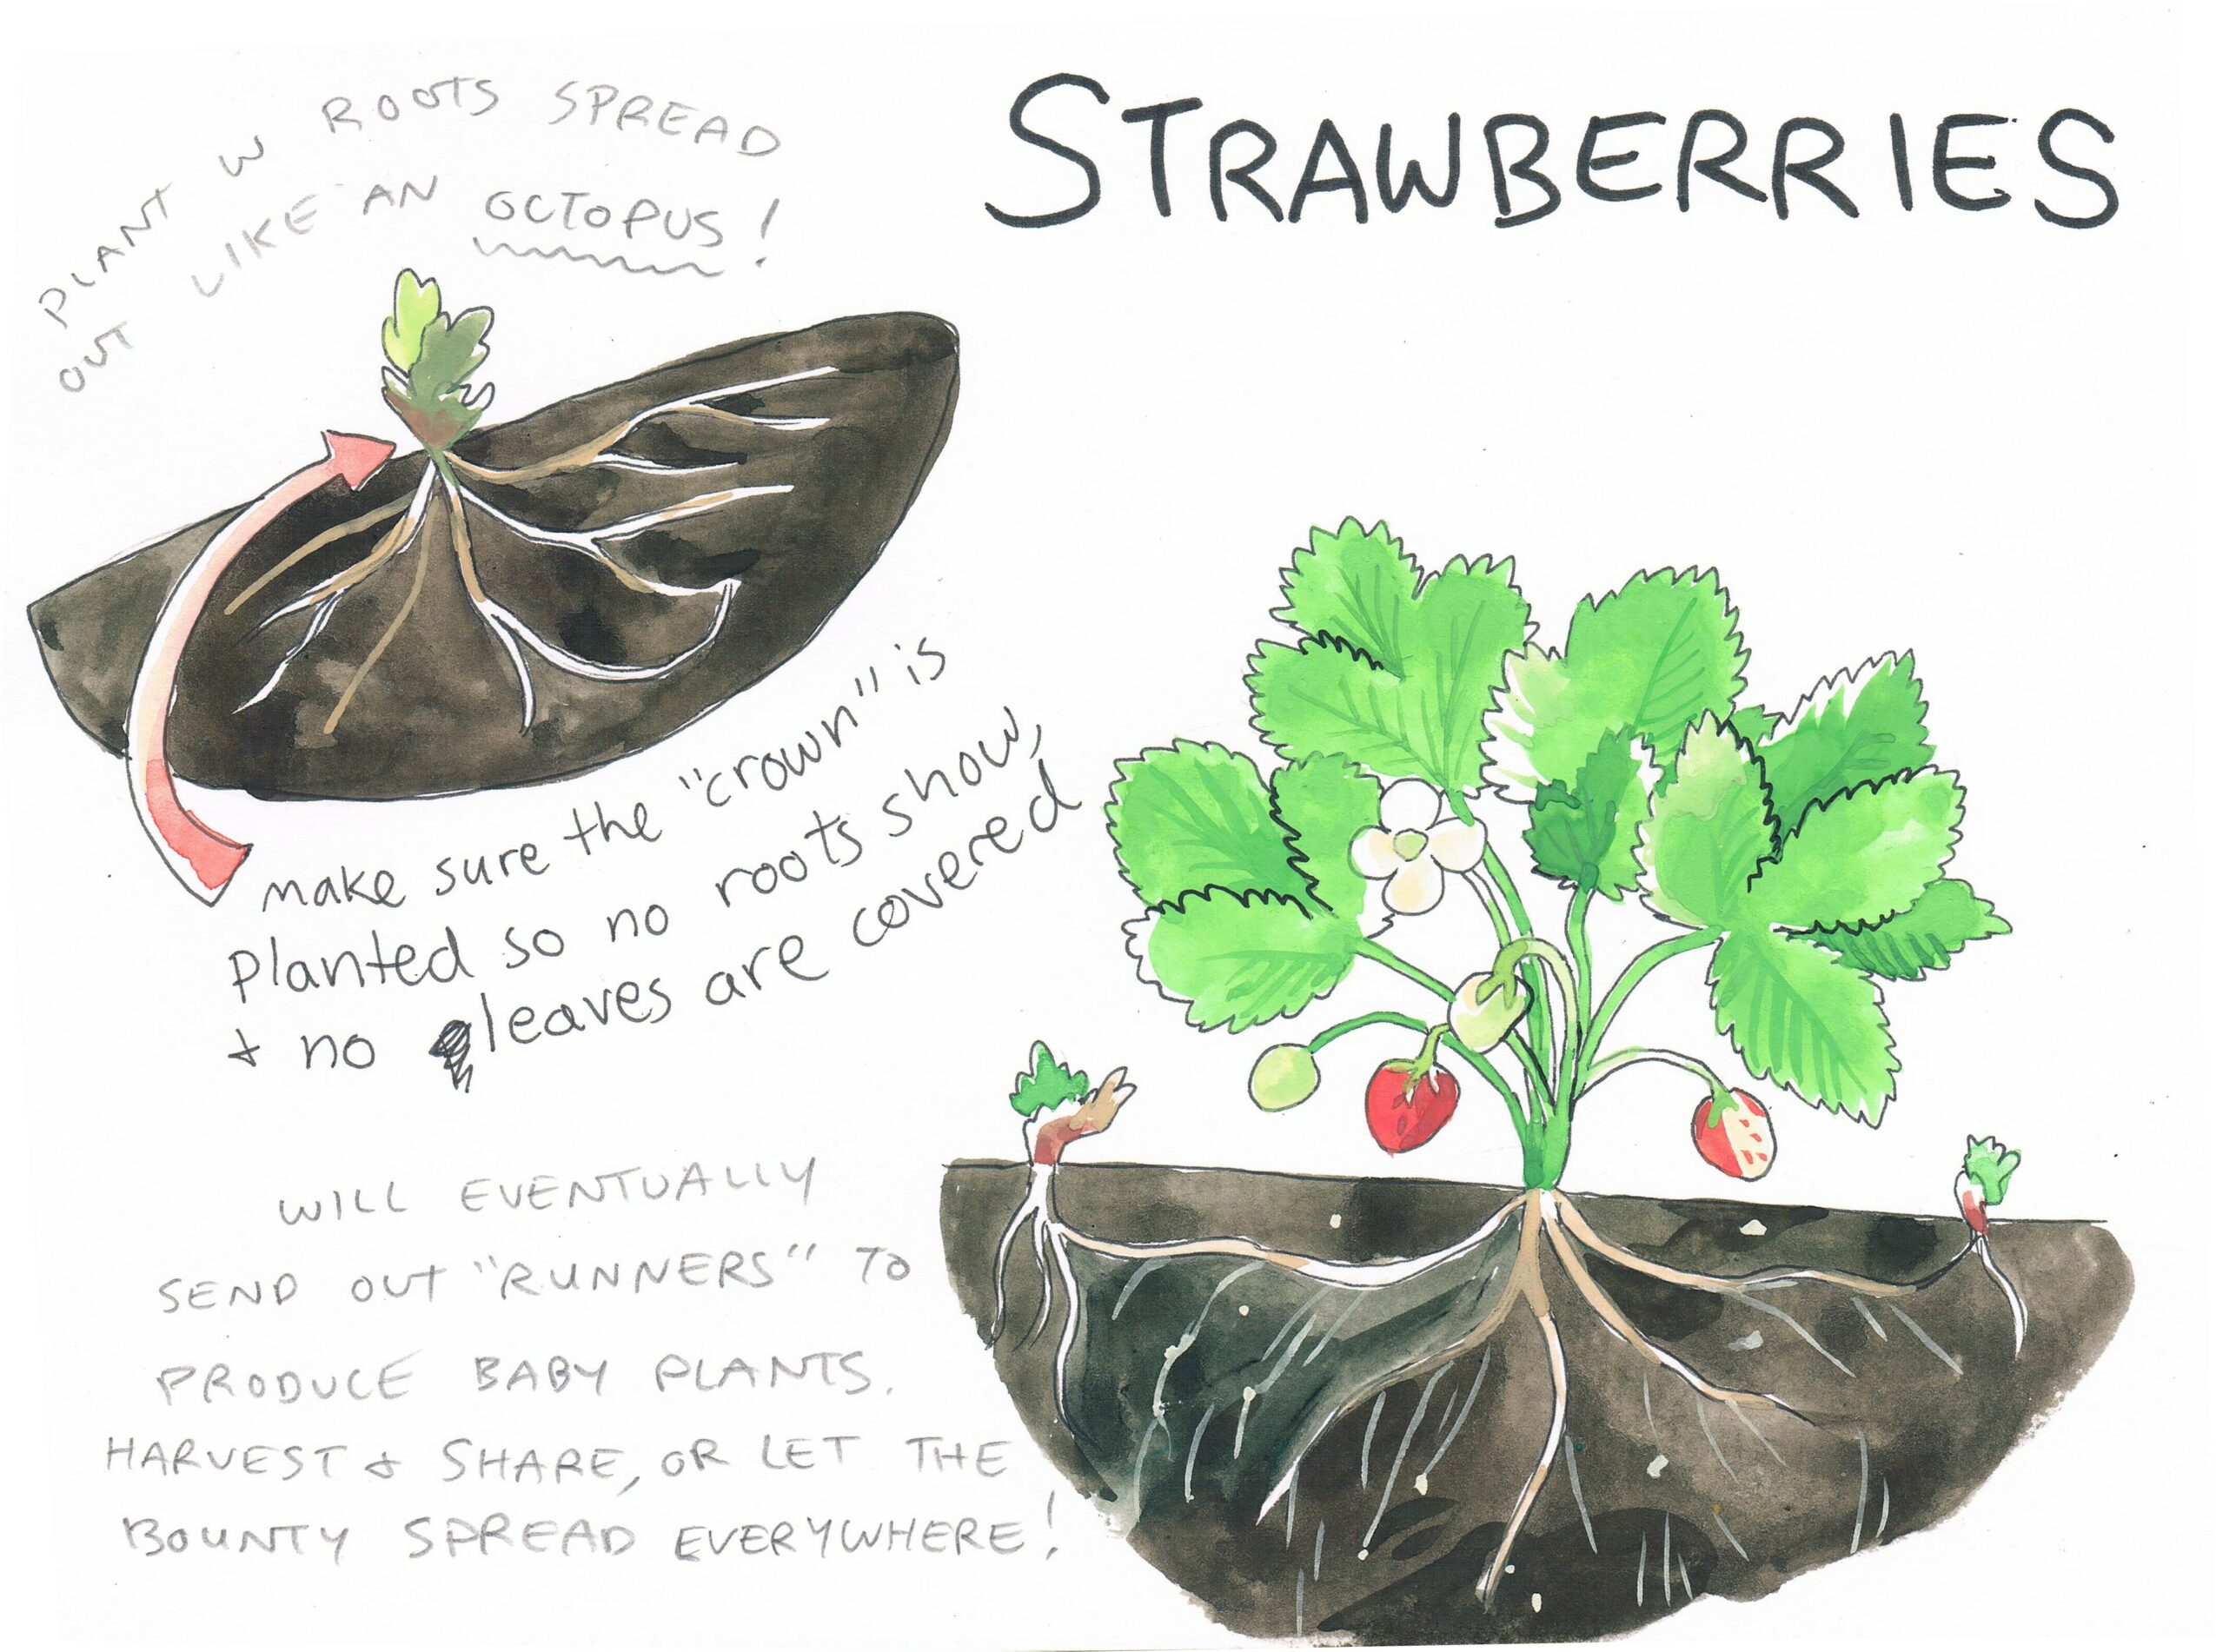 STRAWBERRIES
PLANT W ROOTS SPREAD
OUT LIKE AN OCTOPUS!
make sure the "crown" is
planted so no roots show,
+ no leaves are covered
WILL EVENTUALLY
SEND OUT "RUNNERS" TO
PRODUCE BABY PLANTS.
HARVEST + SHARE, OR LET THE
BOUNTY SPREAD EVERYWHERE!